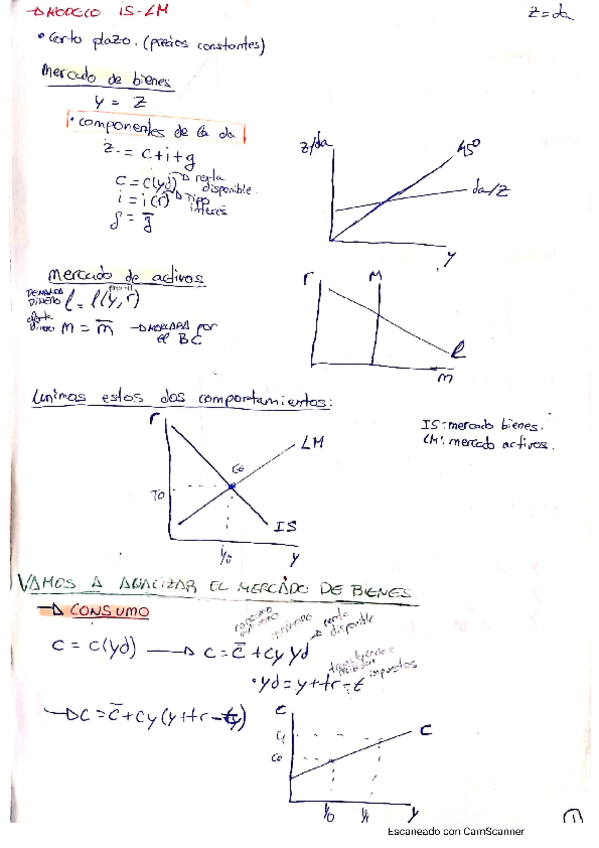 → MODELO IS-LM
Z = da
• Corto plazo. (precios constantes)
Mercado de bienes
Y = Z
• componentes de la da
Z = C + i + g
C = C(yd) → renta disponible.
i = i(r) → Tipo interés
g = g̅
Z/da
45º
da/Z
Y
Mercado de activos
DEMANDA DINERO l = l(y, r)
oferta dinero m = m̅ → MARCADA por el BC
r
M
l
m
Unimos estos dos comportamientos:
IS: mercado bienes.
LM: mercado activos.
r
LM
E0
r0
IS
Y0
Y
VAMOS A ANALIZAR EL MERCADO DE BIENES
→ CONSUMO
C = C(yd) → C = C̅ + Cy Yd
consumo autónomo
renta disponible
• Yd = y + tr - t
transferencias
impuestos
→ C = C̅ + Cy (y + tr - ty)
C
C1
C0
C
Y0
Y1
Y
1
Escaneado con CamScanner